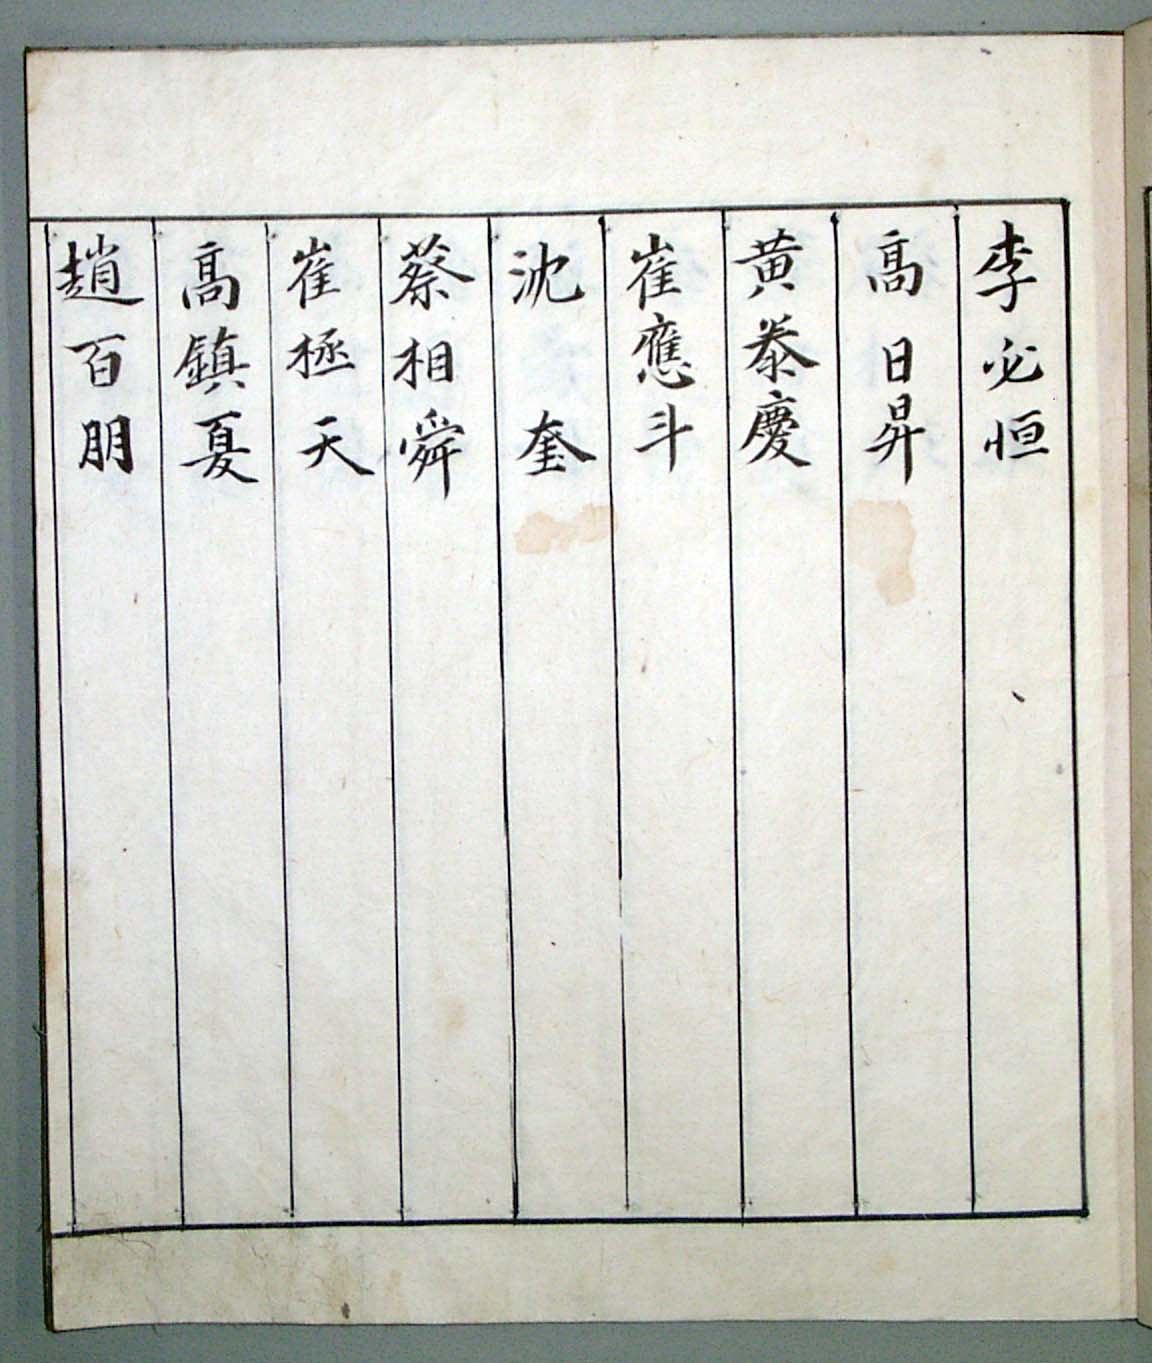 李必恒
髙日昇
黄泰慶
崔應斗
沈奎
蔡相舜
崔極天
髙鎮夏
趙百朋